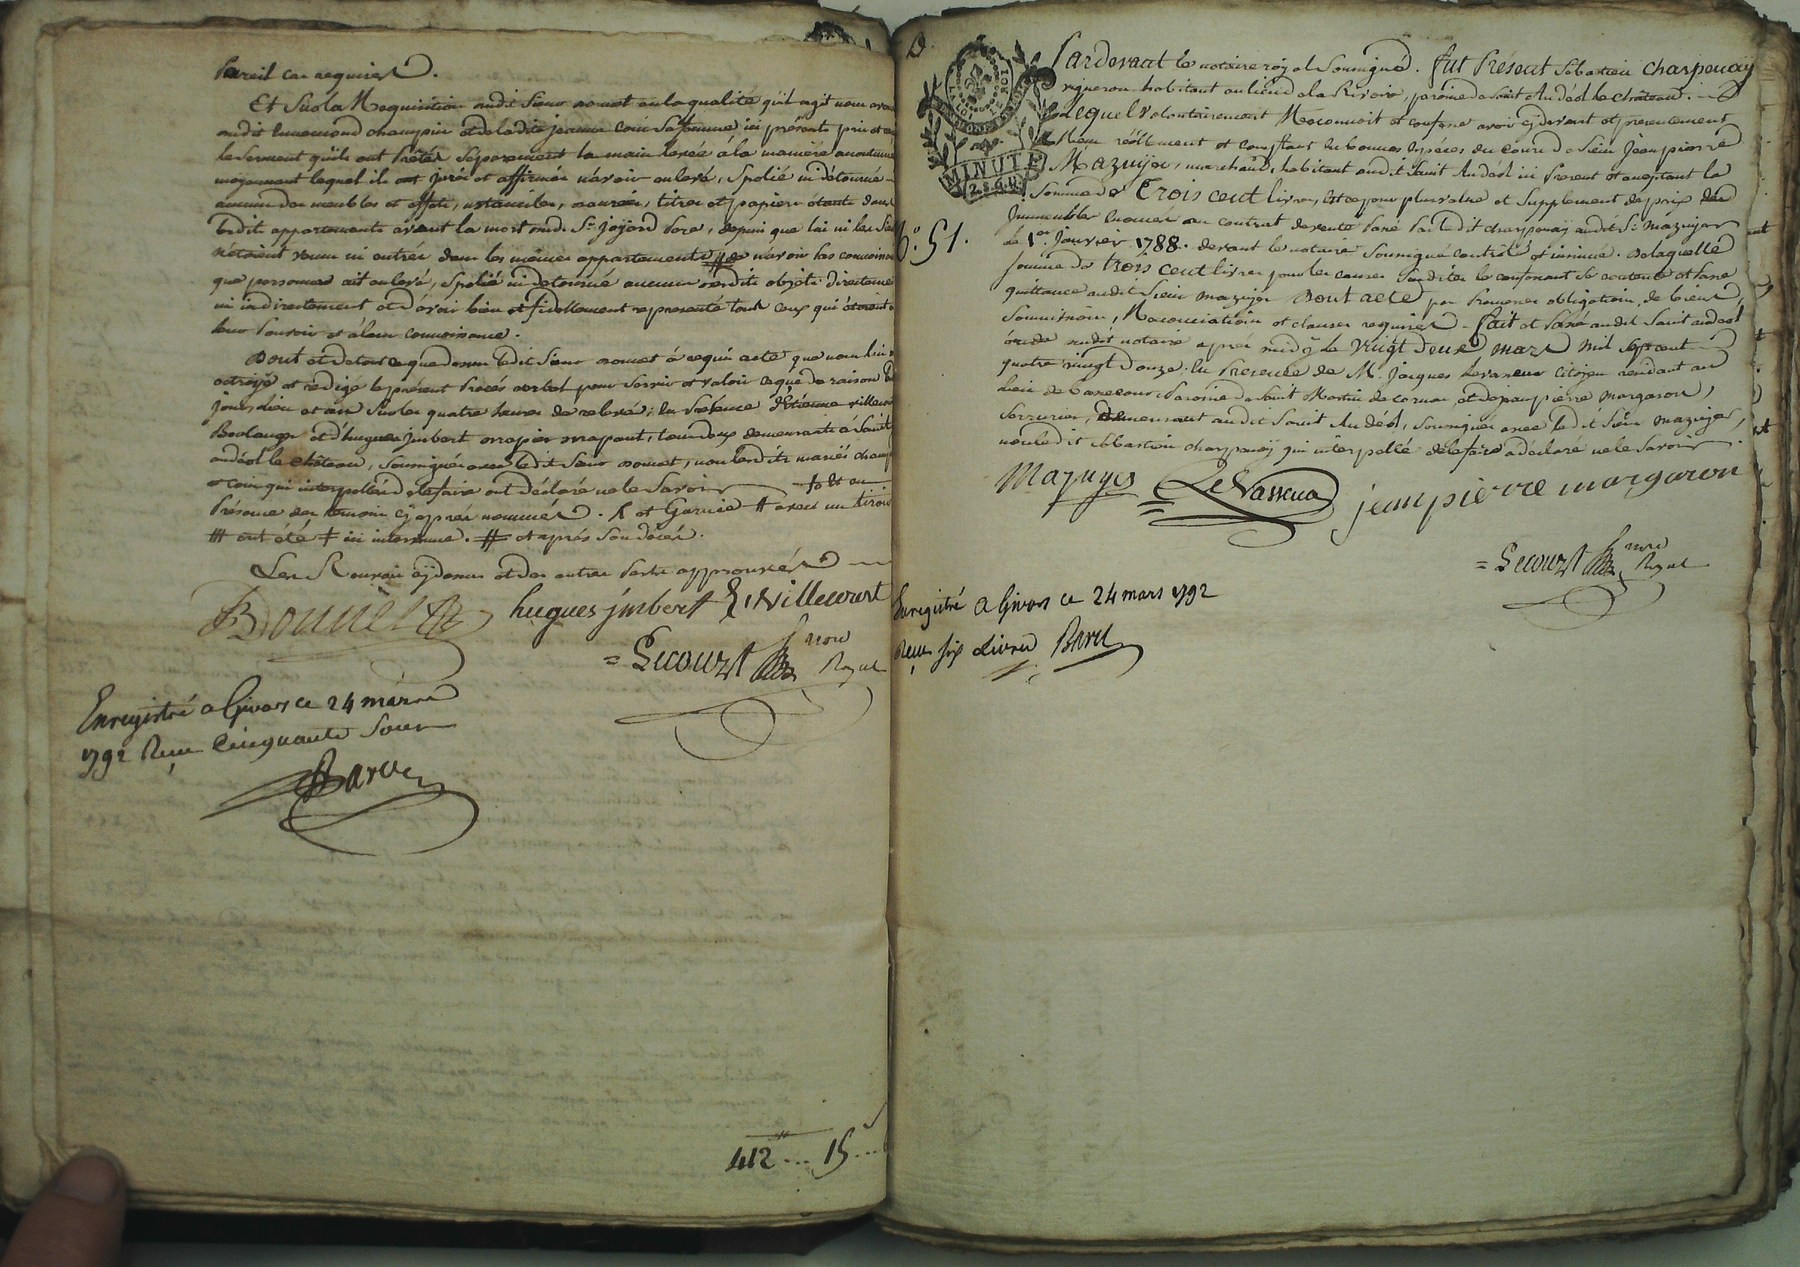 Pareil cas requiert.
Et Sur la Requisition dudit Sieur Bonnet en la qualité qu'il agit nous avons
audit champin et de ladite jeanne Coin Sa femme, ici présents pris et
le Serment qu'ils ont Prêtés Séparement la main levée à la maniére accoutumée
moyennant lequel ils ont juré et affirmés n'avoir enlevé, Spolié ni détourné
aucun des meubles et effets, ustenciles, danrées, titres et papiers étants dans
ledit appartements avant la mort dud. Sr joyard Pore, depuis que lui ni les Siens
n'étoient venu ni entrés dans les mêmes appartements # n'avoir pas connoissance
que personnes ait enlevé, Spolié ni détourné aucuns desdits objets directement
ni indirectement et d'avoir bien et fidellement representé tout ceux qui étoient
leur Pouvoir et à leur connoissance.
Dont et de tout ce que dessus ledit Sieur Bonnet à requis acte que nous lui
octroyé et redigé le présent Procés verbal pour Servir et valoir ce que de raison
jours lieu et an Sur les quatre heures de relevé; En Présence d'Etienne villecourt
Boulanger et d'hugues jmbert demeurants à Saint
andéol le château, Soussignés avec ledit Sieur Bonnet, non lesdits mariés champin
et Coin qui interpellés de le faire ont déclaré ne le Savoir fait en
Présence des temoins cy après nommés. et Garnie # avec un tiroir
ont été ‡ ici # et après Son décès.
Les Renvois cy dessus et des autres Parts approuvés
Bonnet hugues jmbert E. Villecourt
= Lecourt nore Royal
Enregistré a Givors ce 24 mars
1792 Reçu Cinquante Sous
Barou
412 ... 15 ...
Pardevant le notaire royal Soussigné. fut Présent Sébastien Charpenay
vigneron habitant au lieu de la Riviere, paroisse de Saint Andéol le Château.
Lequel volontairement Reconnoit et confesse avoir cydevant et presentement
Reçu réellement et comptant En bonnes Espèces du cours de Sieur Jean pierre
Mazuyer, marchand, habitant audit Saint Andéol ici Présent et acceptant la
Somme de Trois cent livres, Et ce pour plus value et Supplement de prix des
Immeubles Enoncés au contrat de vente Passé Par ledit charpenay audit Sr Mazuyer
le 1er Janvier 1788. devant le notaire Soussigné Controlé et insinué. De laquelle
Somme de trois cent livres pour les causes Susdites le confessant Se contente et Passe
quittance audit Sieur Mazuyer Dont acte par Promesses obligation, de biens,
Soumissions, Renonciation et clauses requises. fait et Passé audit Saint andéol
étude dudit notaire après midy le Vingt deux mars mil Sept cent
quatre vingt douze. En Presence de M. Jacques Levasseur Citoyen residant au
lieu de Paroisse de Saint Martin de Cornas et de jean pierre margaron,
Serrurier, Demeurant audit Saint Andéol, Soussignés avec ledit Sieur Mazuyer,
non ledit Sébastien charpenay qui interpellé de le faire a déclaré ne le Savoir.
Mazuyer LeVasseur jeanpierre margaron
= Lecourt nore Royal
Enregistré a Givors ce 24 mars 1792
Reçu Six Livres Barou
No. 51.
MINUTE
2.S.6.D.